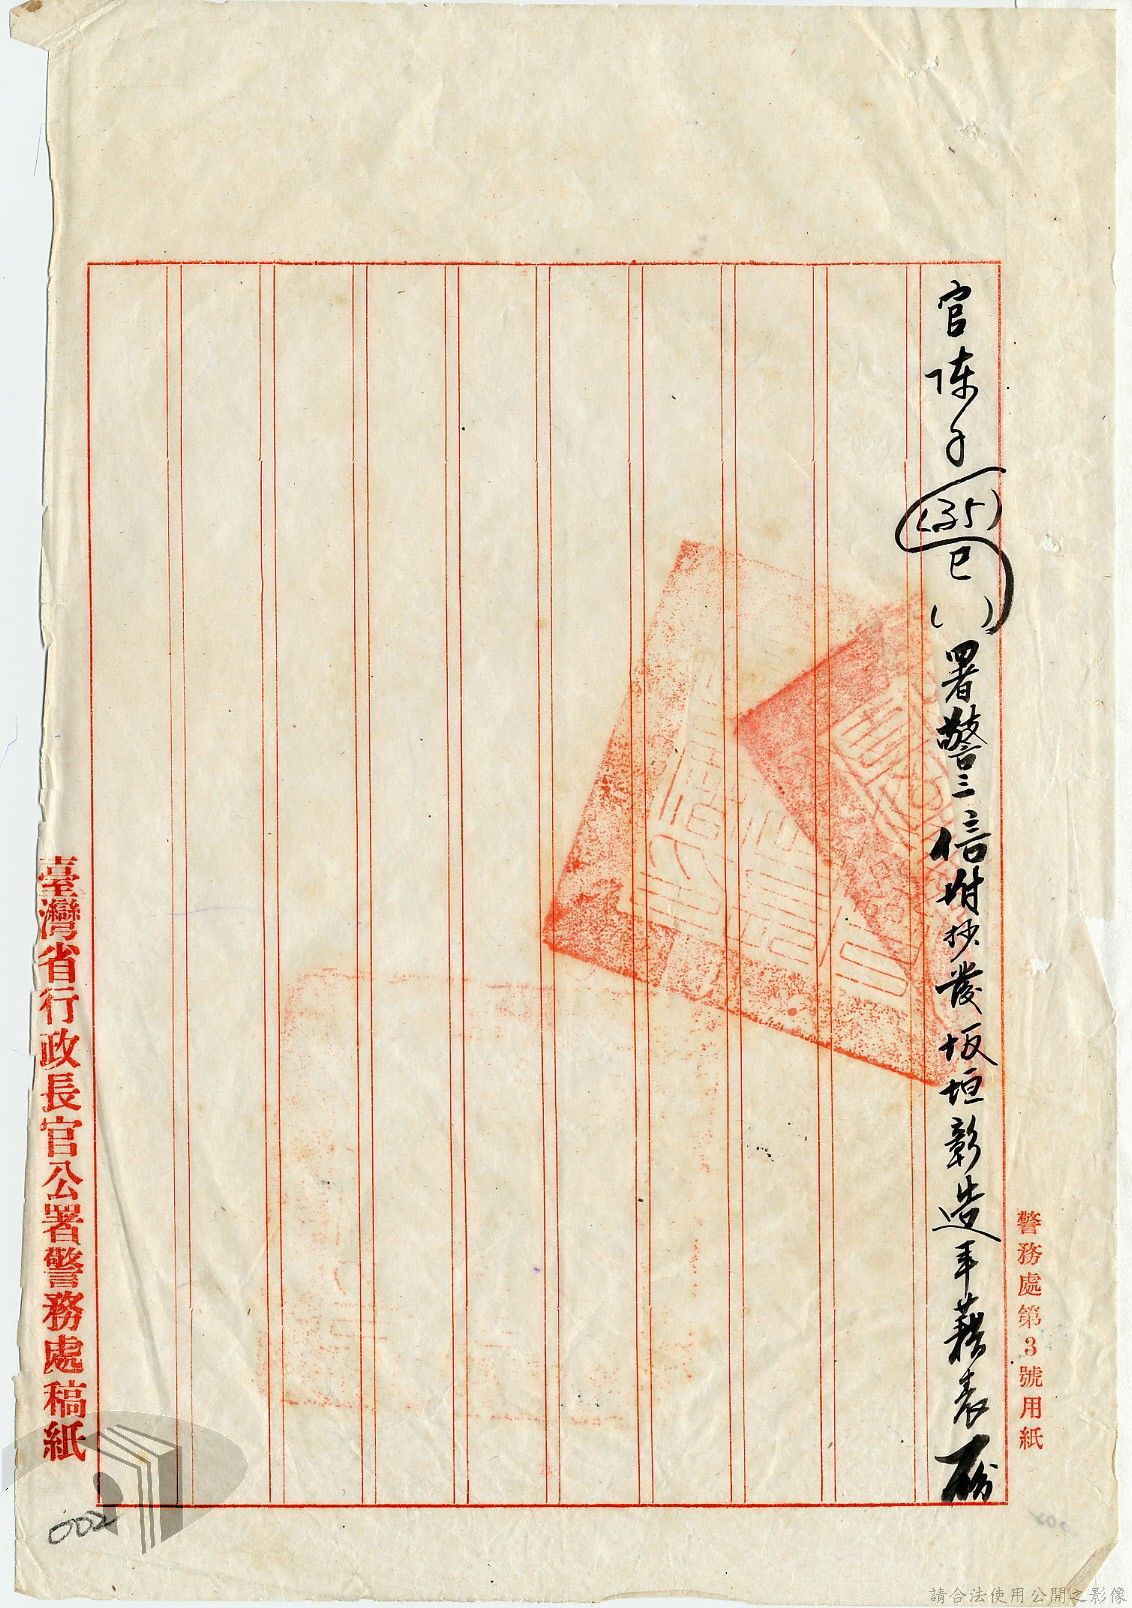 官陳子(35)巳( )署警三倍附抄發坂垣彰造年藉表一份
警務處第3號用紙
臺灣省行政長官公署警務處稿紙
002
請合法使用公開之影像